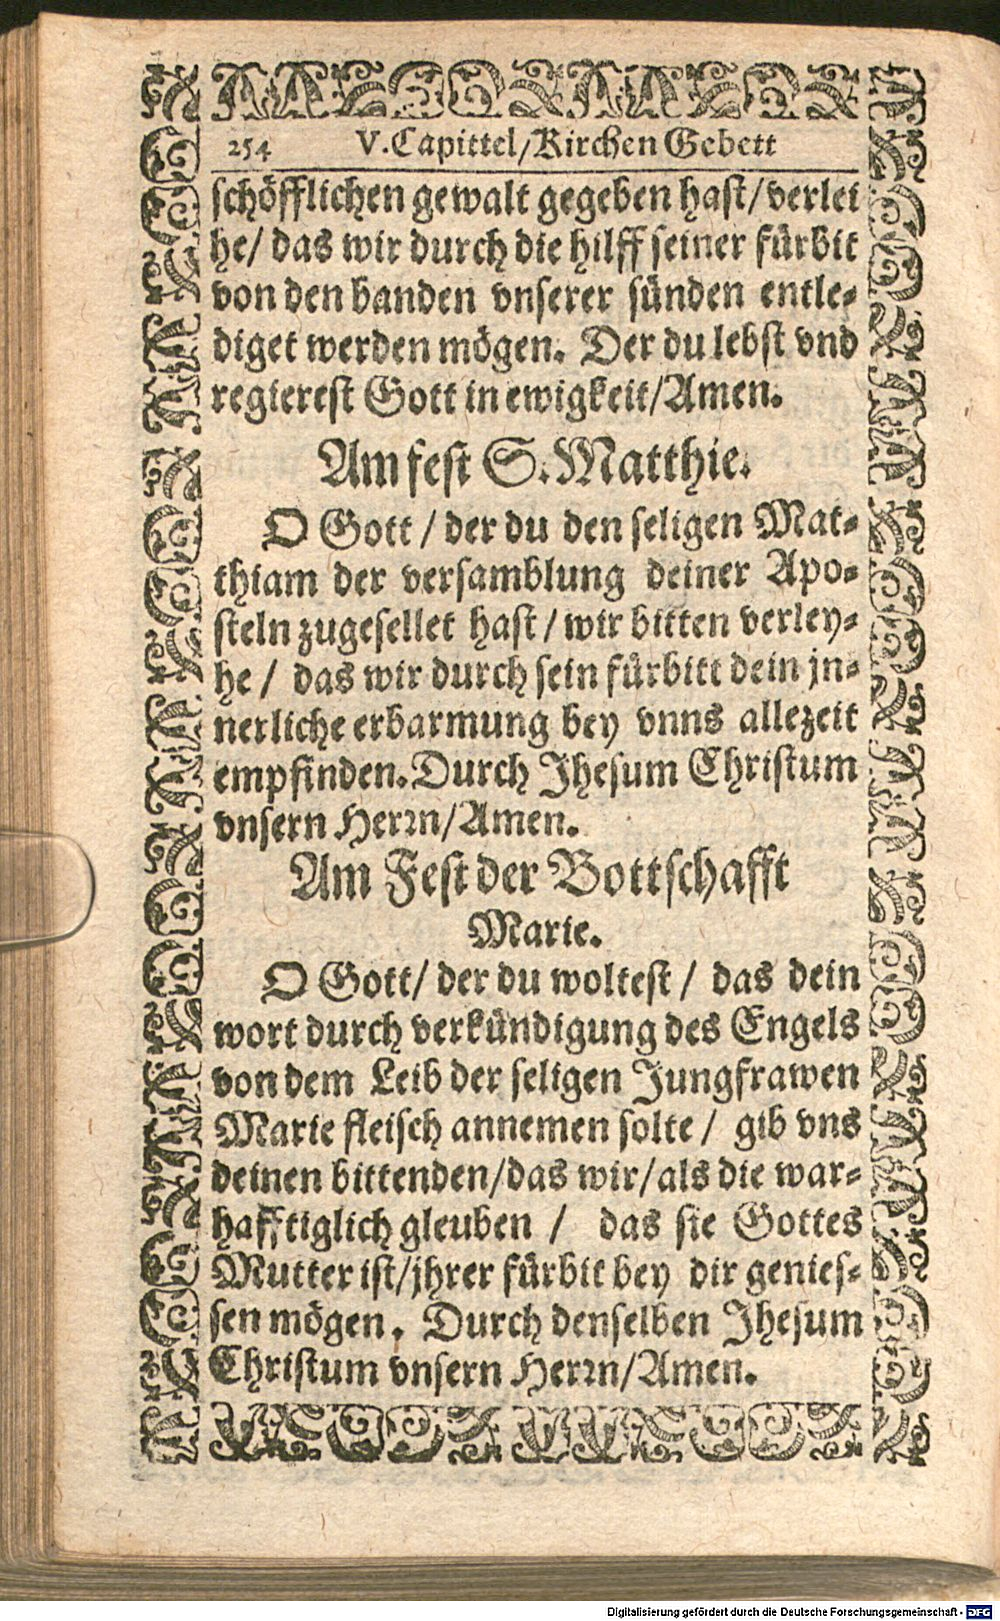 254 V. Capittel/Kirchen Gebett
schöfflichen gewalt gegeben hast/verlei
he/ das wir durch die hilff seiner fürbit
von den banden vnserer sünden entle-
diget werden mögen. Der du lebst vnd
regierest Gott in ewigkeit/Amen.
Am fest S. Matthie.
O Gott / der du den seligen Mat-
thiam der versamblung deiner Apo-
steln zugesellet hast / wir bitten verley-
he / das wir durch sein fürbitt dein jn-
nerliche erbarmung bey vnns allezeit
empfinden. Durch Jhesum Christum
vnsern Herrn/Amen.
Am Fest der Bottschafft
Marie.
O Gott/ der du woltest / das dein
wort durch verkündigung des Engels
von dem Leib der seligen Jungfrawen
Marie fleisch annemen solte / gib vns
deinen bittenden/das wir/als die war-
hafftiglich gleuben / das sie Gottes
Mutter ist/jhrer fürbit bey dir genies-
sen mögen. Durch denselben Jhesum
Christum vnsern Herrn/Amen.
Digitalisierung gefördert durch die Deutsche Forschungsgemeinschaft - DFG